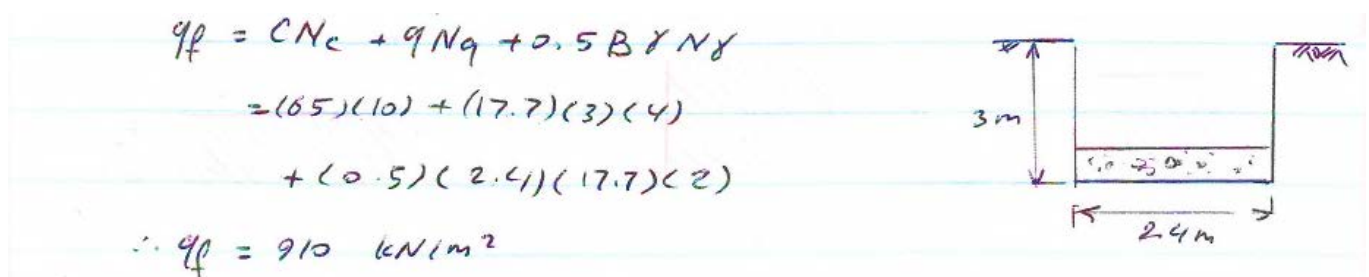 qf = CNc + qNq + 0.5 B γ Nγ
= (65)(10) + (17.7)(3)(4)
+ (0.5)(2.4)(17.7)(2)
∴ qf = 910 kN/m²
3m
2.4m